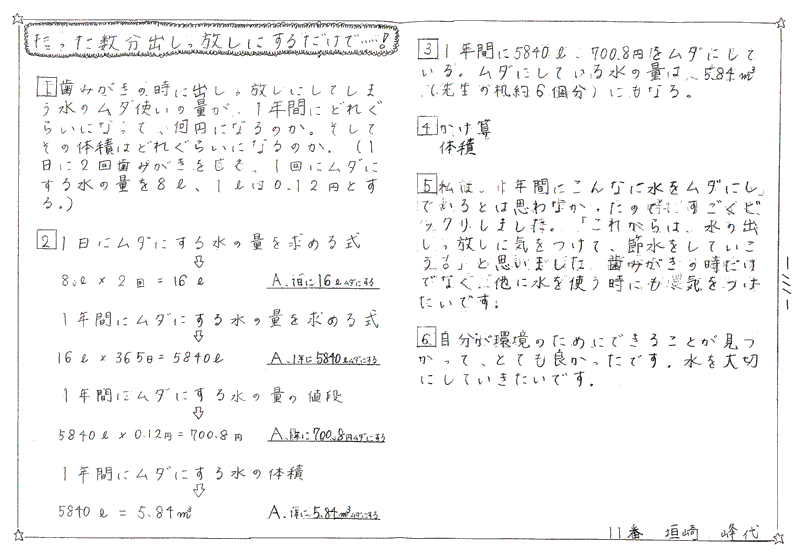 たった数分出しっ放しにするだけで……!
1 歯みがきの時に出しっ放しにしてしま
う水のムダ使いの量が、1年間にどれぐ
らいになって、何円になるのか。そして
その体積はどれぐらいになるのか。(1
日に2回歯みがきをし、1回にムダに
する水の量を8ℓ、1ℓは0.12円とす
る。)
2 1日にムダにする水の量を求める式
⇩
8ℓ × 2回 = 16ℓ A.1日に16ℓムダにする
1年間にムダにする水の量を求める式
⇩
16ℓ × 365日 = 5840ℓ A.1年に5840ℓムダにする
1年間にムダにする水の量の値段
⇩
5840ℓ × 0.12円 = 700.8円 A.1年に700.8円ムダにする
1年間にムダにする水の体積
⇩
5840ℓ = 5.84m³ A.1年に5.84m³ムダにする
3 1年間に5840ℓ、700.8円をムダにして
いる。ムダにしている水の量は、5.84m³
(先生の机約6個分)にもなる。
4 かけ算
体積
5 私は、1年間にこんなに水をムダにし
ているとは思わなかったのですごくビ
ックリしました。「これからは、水の出
しっ放しに気をつけて、節水をしていこ
う。」と思いました。歯みがきの時だけ
でなく、他に水を使う時にも気をつけ
たいです。
6 自分が環境のためにできることが見つ
かって、とても良かったです。水を大切
にしていきたいです。
11番 垣崎 峰代